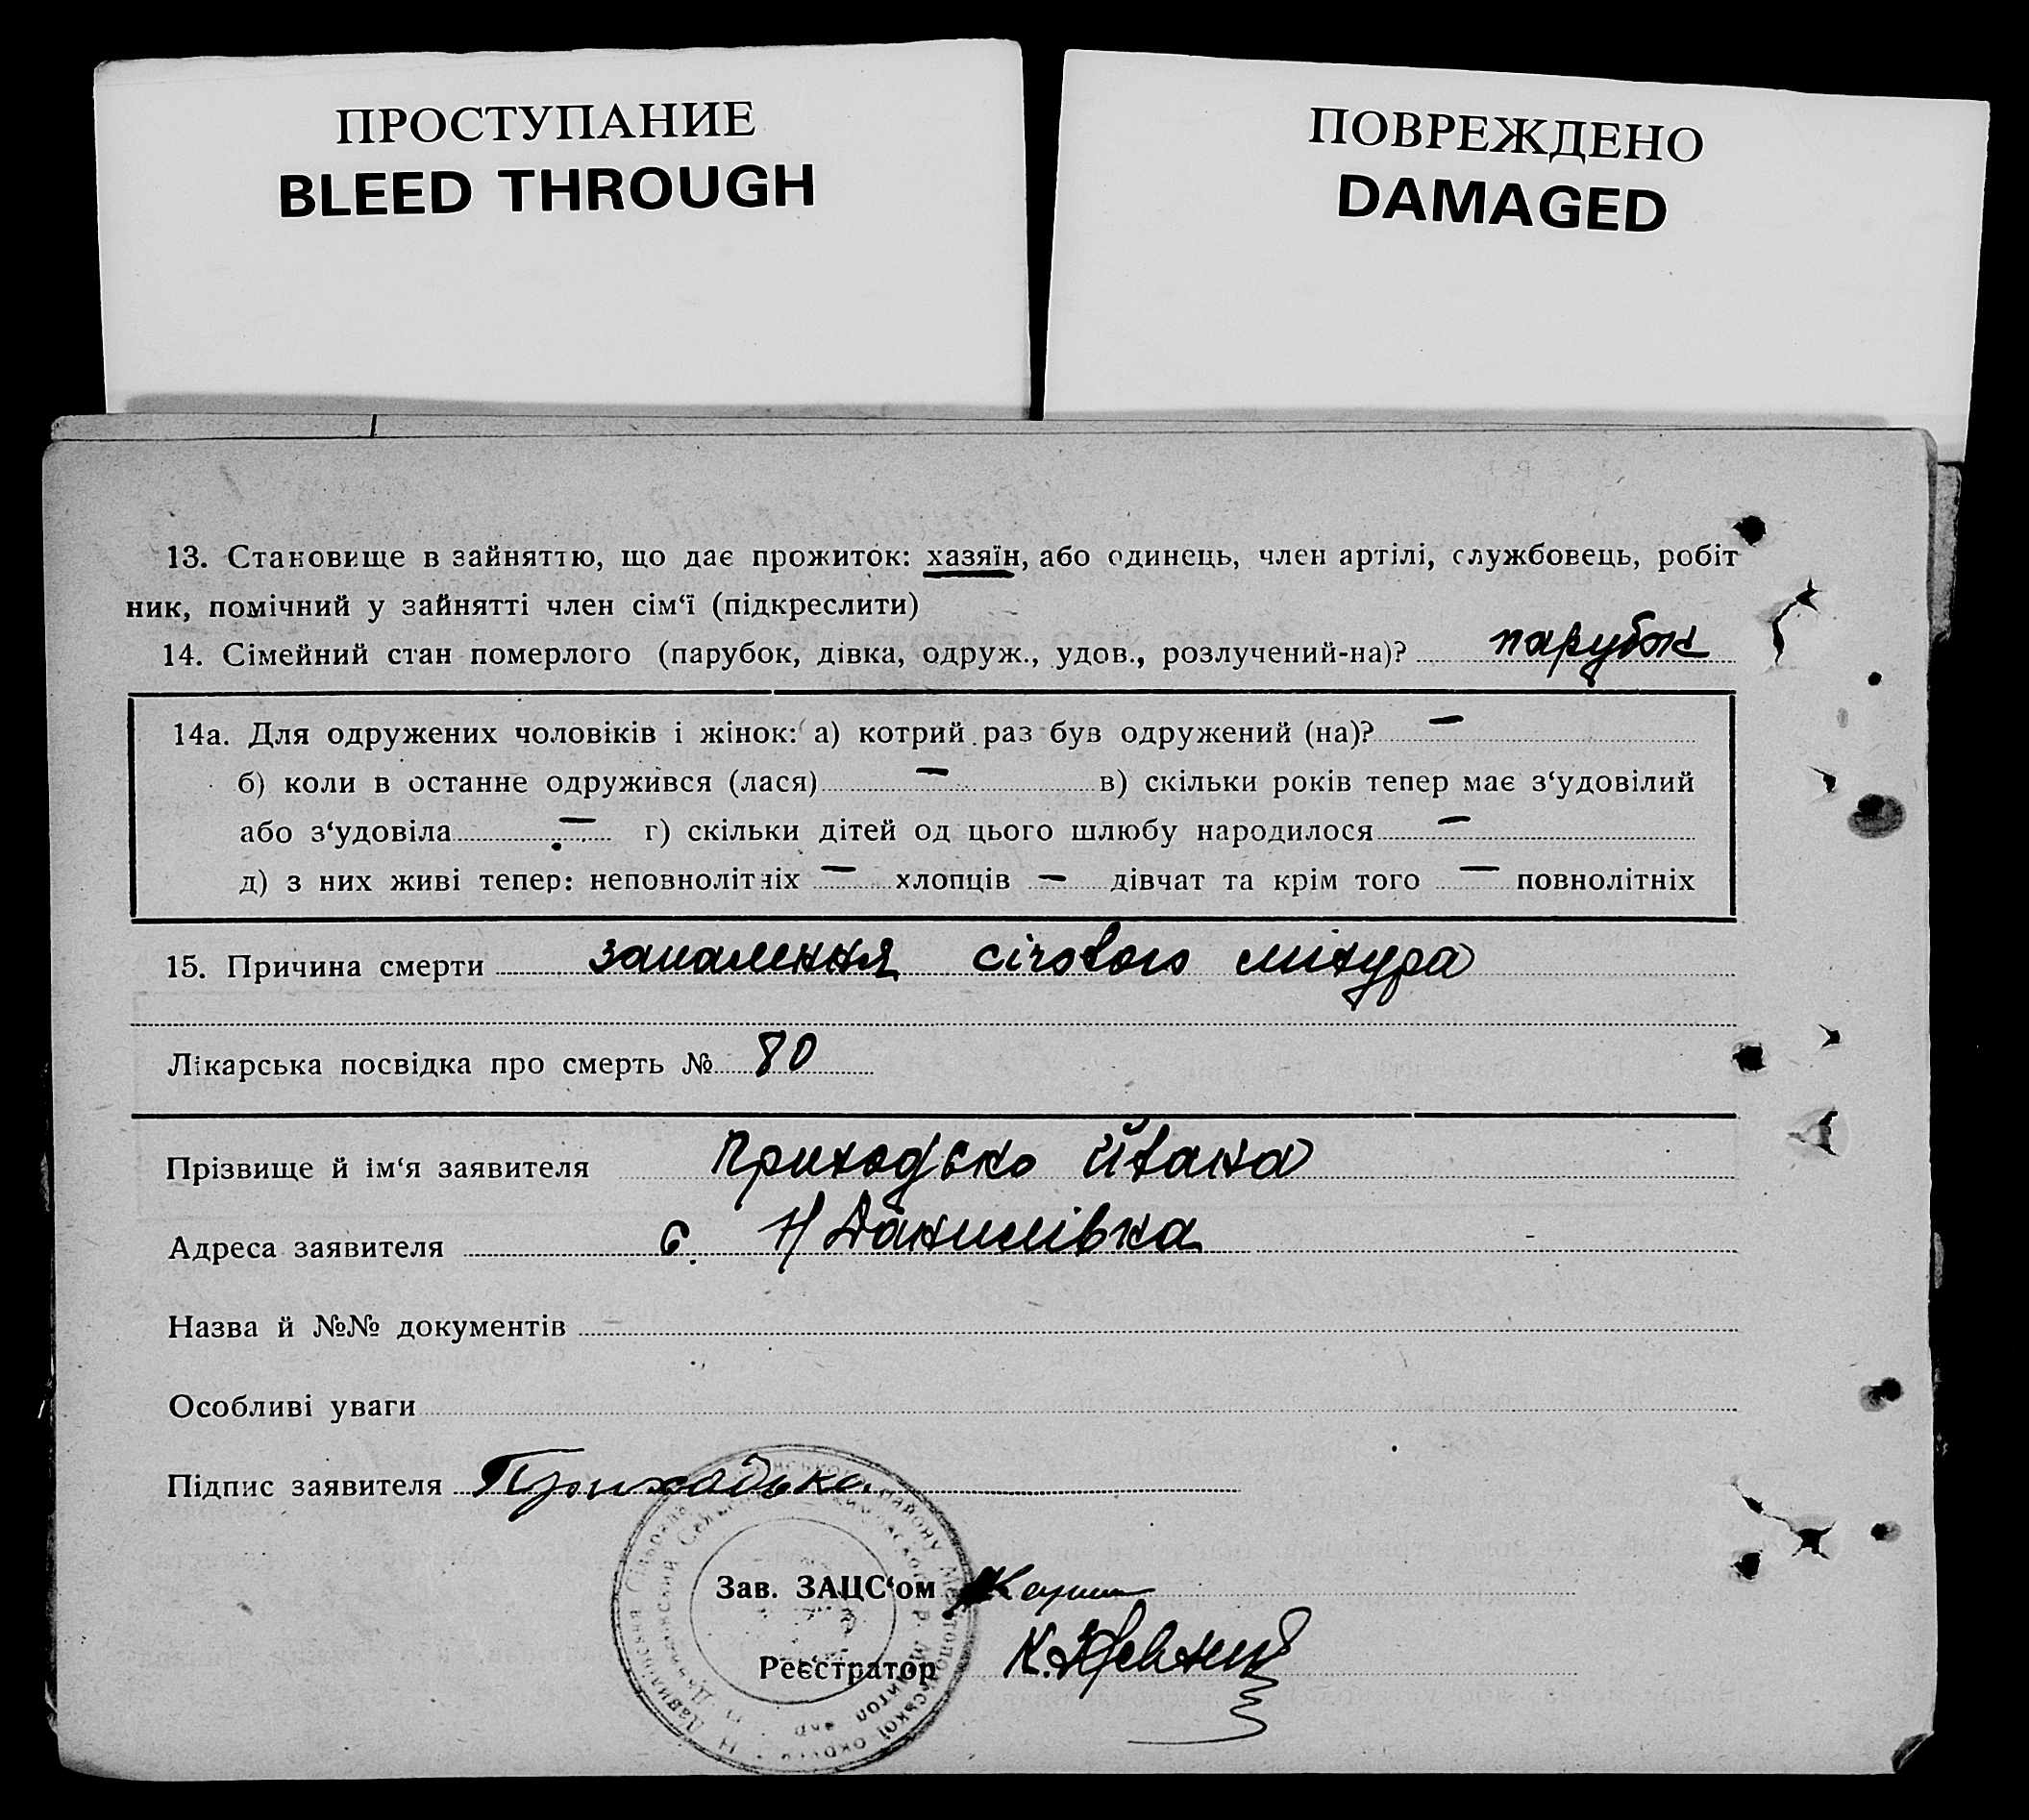 ПРОСТУПАНИЕ
BLEED THROUGH
ПОВРЕЖДЕНО
DAMAGED
13. Становище в зайняттю, що дає прожиток: хазяїн, або одинець, член артілі, службовець, робіт
ник, помічний у зайнятті член сім‘ї (підкреслити)
14. Сімейний стан померлого (парубок, дівка, одруж., удов., розлучений-на)? парубок
14а. Для одружених чоловіків і жінок: а) котрий раз був одружений (на)? —
б) коли в останне одружився (лася) — в) скільки років тепер має з‘удовілий
або з‘удовіла — г) скільки дітей од цього шлюбу народилося —
д) з них живі тепер: неповнолітніх — хлопців — дівчат та крім того — повнолітніх
15. Причина смерти запалення січового міхура
Лікарська посвідка про смерть № 80
Прізвище й ім‘я заявителя Приходько Йвана
Адреса заявителя с. Н Данилівка
Назва й №№ документів
Особливі уваги
Підпис заявителя Приходько
Зав. ЗАЦС‘ом
Реєстратор К.
району Мелітопольської округи